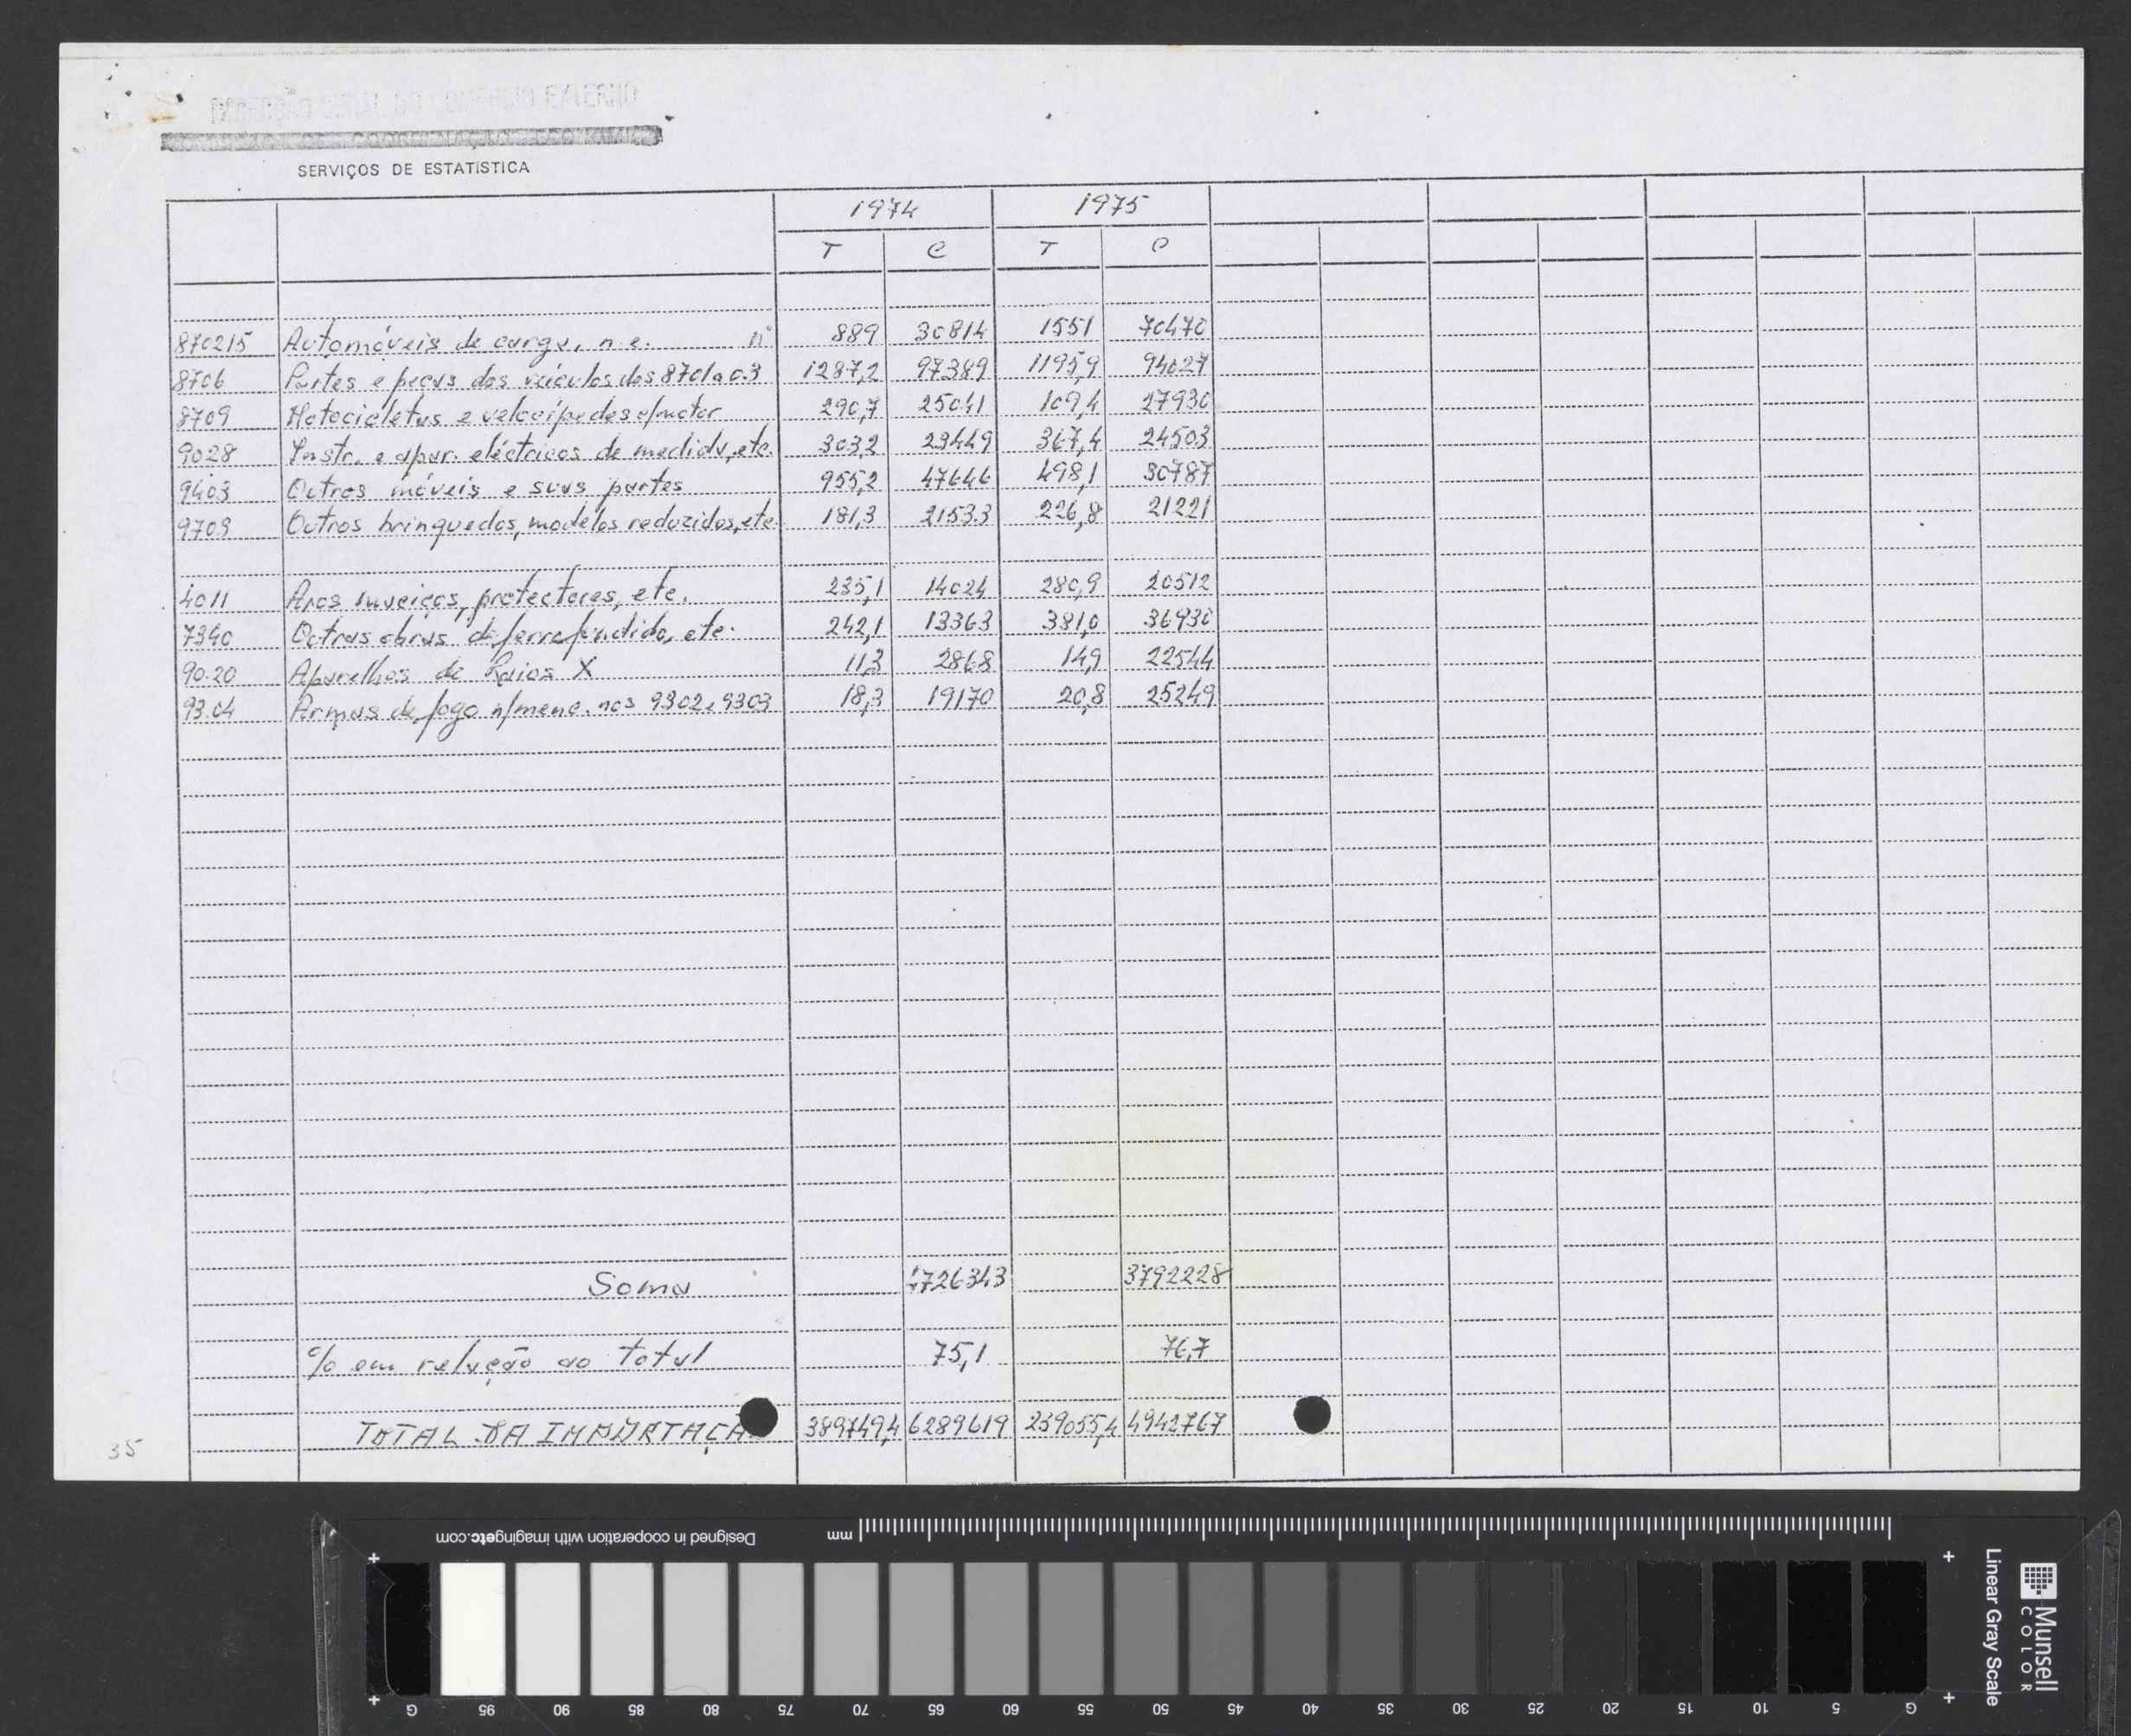 DIRECÇÃO GERAL DO COMÉRCIO EXTERNO
SERVIÇOS DE ESTATÍSTICA
1974 1975
T C T C
870215 Automóveis de carga, n.e. nº 889 30814 1551 70470
8706 Partes e peças dos veículos dos 8701 a 03 1287,2 97389 1195,9 94027
8709 Motocicletas e velocípedes c/motor 290,7 25041 109,4 27930
9028 Instr. e apar. eléctricos de medida, etc. 303,2 23449 367,4 24503
9403 Outros móveis e suas partes 955,2 47646 498,1 30787
9703 Outros brinquedos, modelos reduzidos, etc. 181,3 21533 226,8 21221
4011 Aros maciços, protectores, etc. 235,1 14024 280,9 20512
7340 Outras obras de ferro fundido, etc. 242,1 13363 381,0 36930
90.20 Aparelhos de Raios X 11,3 2868 14,9 22544
93.04 Armas de fogo n/menc. nos 9302 e 9303 18,3 19170 20,8 25249
Soma 4726343 3792228
% em relação ao total 75,1 76,7
TOTAL DA IMPORTAÇÃO 389749,4 6289619 239055,4 4942767
35
Designed in cooperation with imagingetc.com
mm
G 95 90 85 80 75 70 65 60 55 50 45 40 35 30 25 20 15 10 5 G
Linear Gray Scale
Munsell
COLOR